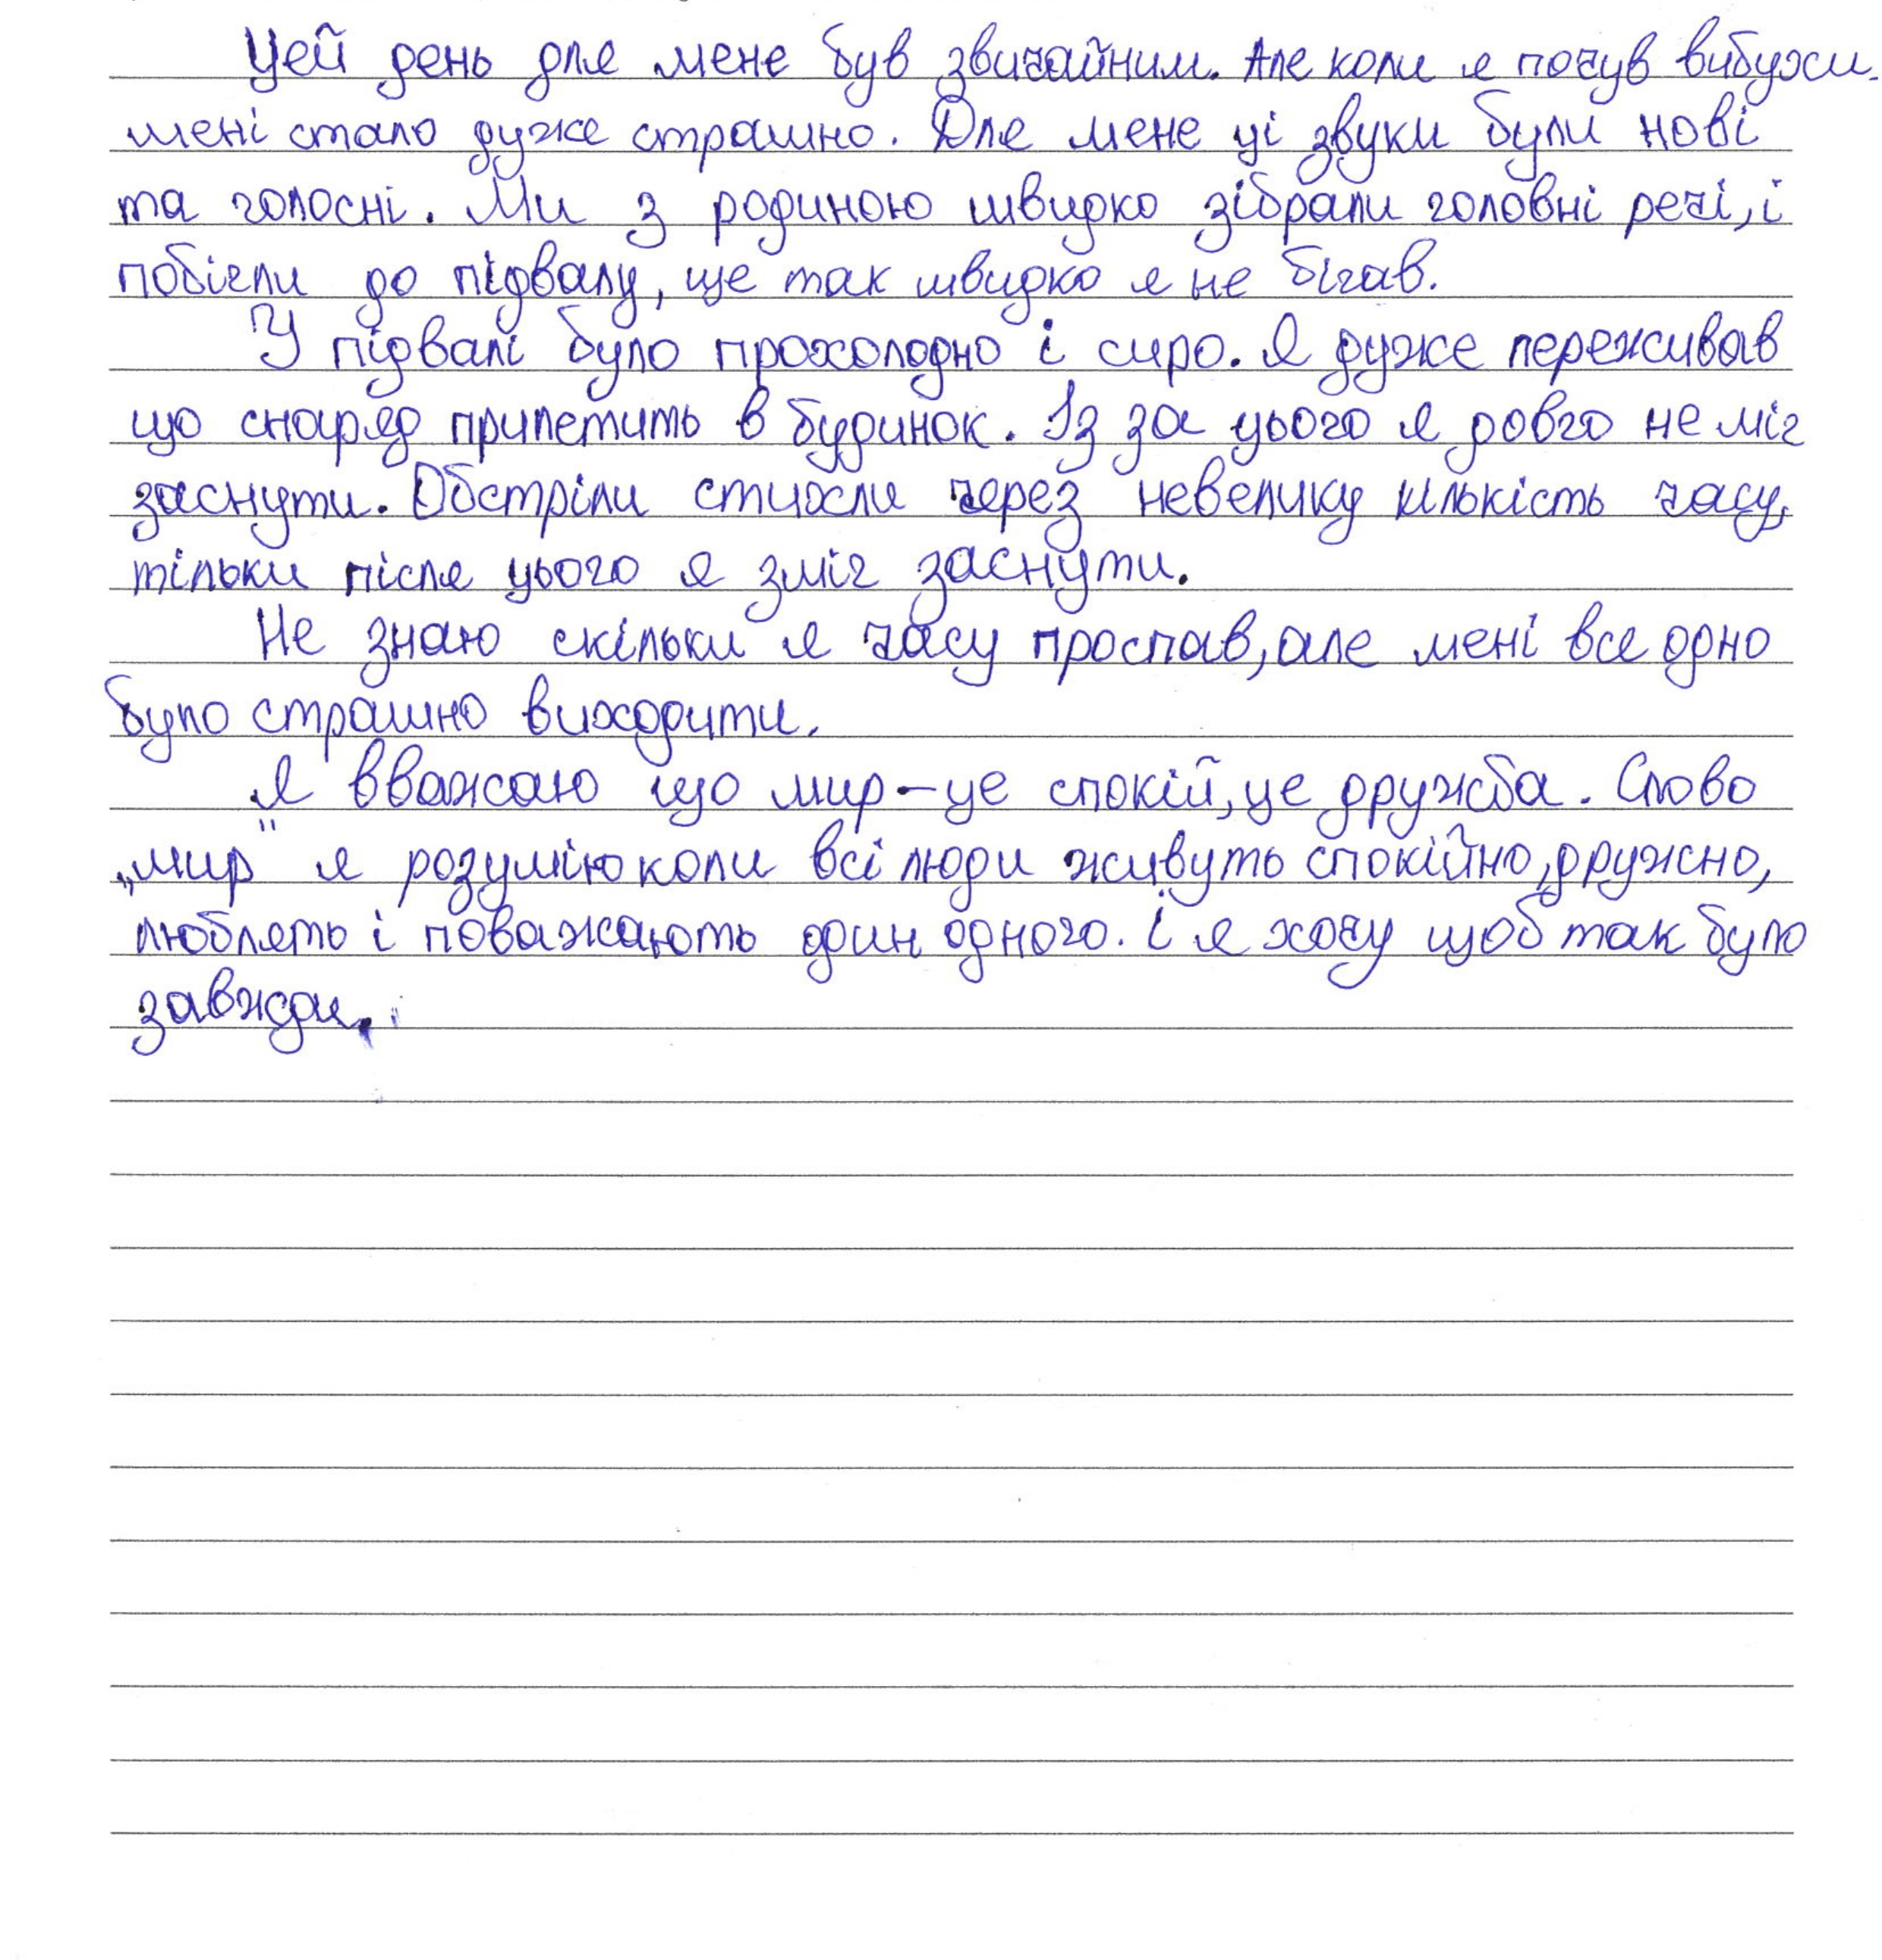 Цей день для мене був звичайним. Але коли я почув вибухи.
мені стало дуже страшно. Для мене ці звуки були нові
та голосні. Ми з родиною швидко зібрали головні речі, і
побігли до підвалу, ще так швидко я не бігав.
У підвалі було прохолодно і сиро. Я дуже переживав
що снаряд прилетить в будинок. Із за цього я довго не міг
заснути. Обстріли стихли через невелику кількість часу,
тільки після цього я зміг заснути.
Не знаю скільки я часу проспав, але мені все одно
було страшно виходити.
Я вважаю що мир - це спокій, це дружба. Слово
„мир" я розумію коли всі люди живуть спокійно, дружно,
люблять і поважають один одного. І я хочу щоб так було
завжди.